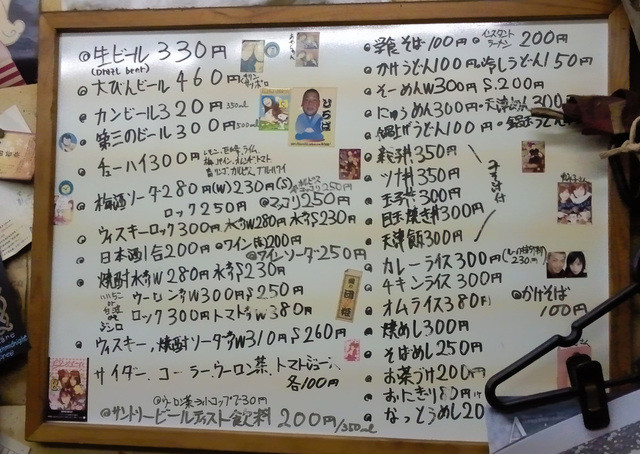 生ビール 330円
(Draft beer)
大びんビール 460円 キリン サッポロ
カンビール 320円 350ml
第三のビール 300円 500ml
チューハイ 300円
梅酒ソーダ 280円(W) 230円(S)
ロック 250円
ウィスキーロック 300円 水割W280円 水割S230円
日本酒1合 200円 ワイン 200円
ワインソーダ 250円
焼酎水割W 280円 水割S 230円
ウーロン割W300円 S250円
ロック 300円 トマト割W380円
ウィスキー、焼酎ソーダ割W310円 S260円
サイダー、コーラ、ウーロン茶、トマトジュース 各100円
サントリービールテイスト飲料 200円/350ml
そば100円 インスタントラーメン 200円
かけうどん100円 冷しうどん150円
そーめんW300円 S.200円
にゅうめん300円 天津めん300
うどん100円
350円
ツナ丼350円
玉子丼300円
目玉焼き丼300円
天津飯300円
みそ汁付
カレーライス 300円 230円
チキンライス 300円
かけそば 100円
オムライス 380円
焼めし300円
そばめし250円
お茶づけ200円
おにぎり80円
なっとうめし20